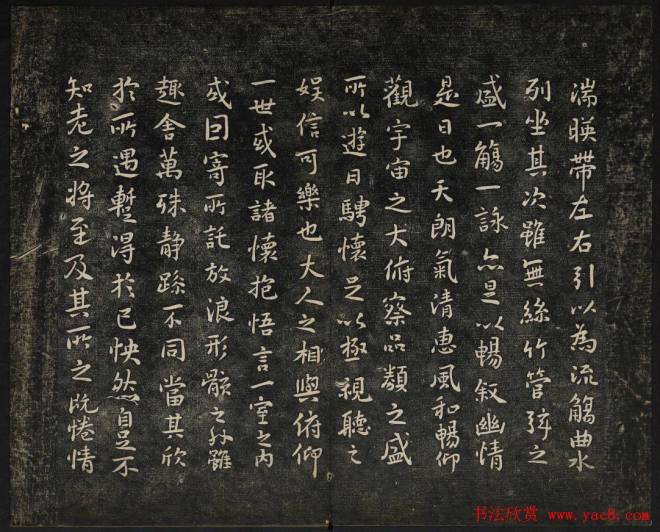 湍暎帶左右引以為流觴曲水
列坐其次雖無絲竹管弦之
盛一觴一詠亦足以暢叙幽情
是日也天朗氣清惠風和暢仰
觀宇宙之大俯察品類之盛
所以遊目騁懷足以極視聽之
娛信可樂也夫人之相與俯仰
一世或取諸懷抱悟言一室之內
或因寄所託放浪形骸之外雖
趣舍萬殊静躁不同當其欣
於所遇暫得於己怏然自足不
知老之將至及其所之既惓情
书法欣赏 www.yac8.com